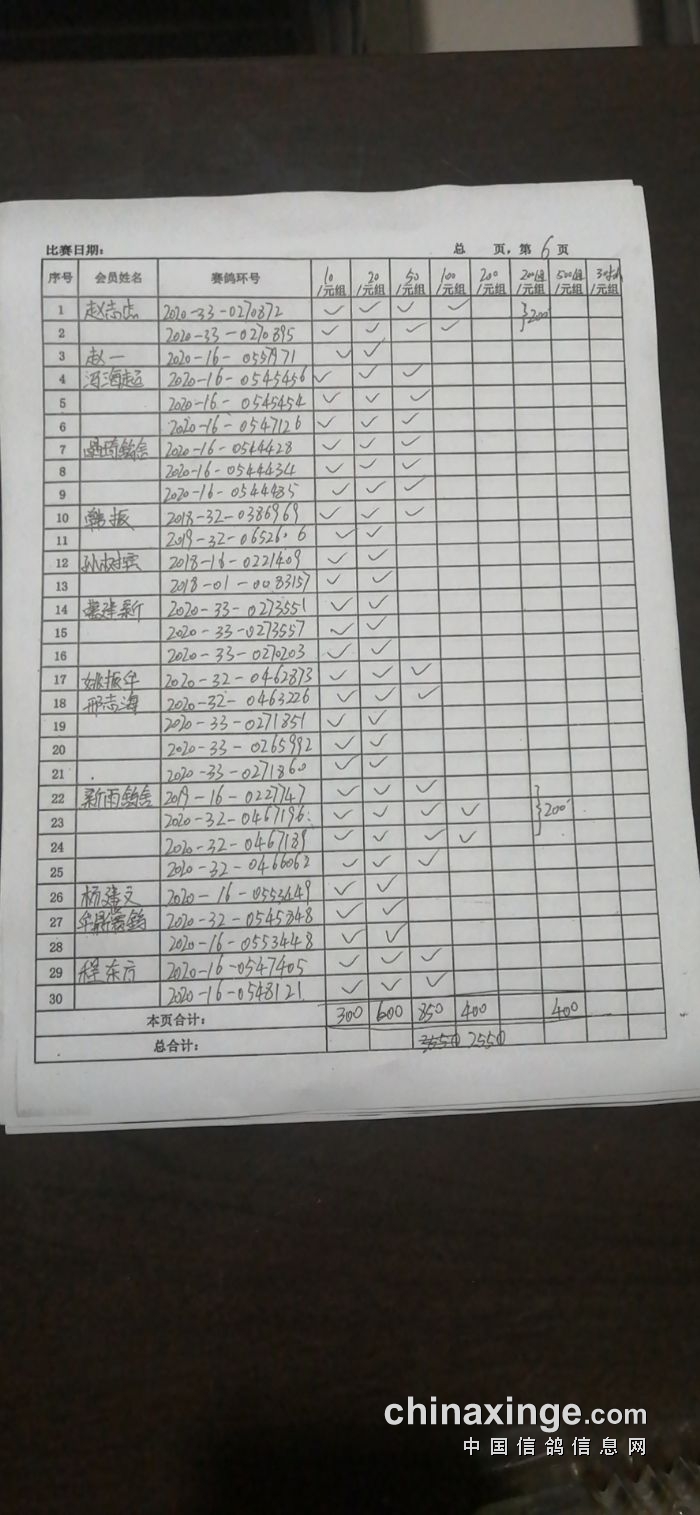 比赛日期: 总 页,第 6 页
序号 会员姓名 赛鸽环号 10/元组 20/元组 50/元组 100/元组 200/元组 200组/元组 500组/元组 /元组
1 赵志杰 2020-33-0270872 ✓ ✓ ✓ ✓ }200
2 2020-33-0270895 ✓ ✓ ✓ ✓
3 赵一 2020-16-0557971 ✓ ✓
4 冯海超 2020-16-0545456 ✓ ✓ ✓
5 2020-16-0545454 ✓ ✓ ✓
6 2020-16-0547126 ✓ ✓ ✓
7 2020-16-0544428 ✓ ✓ ✓
8 2020-16-0544434 ✓ ✓ ✓
9 2020-16-0544485 ✓ ✓ ✓
10 韩振 2018-32-0386969 ✓ ✓ ✓
11 2019-32-0652606 ✓ ✓
12 孙树云 2018-16-0221409 ✓ ✓
13 2018-01-0083157 ✓ ✓
14 建新 2020-33-0273551 ✓ ✓
15 2020-33-0273557 ✓ ✓
16 2020-33-0270203 ✓ ✓
17 姚振华 2020-32-0462873 ✓ ✓ ✓
18 邢志海 2020-32-0463226 ✓ ✓ ✓
19 2020-33-0271851 ✓ ✓
20 2020-33-0265992 ✓ ✓
21 2020-33-0271860 ✓ ✓
22 新雨鸽舍 2019-16-0227747 ✓ ✓ ✓
23 2020-32-0467196 ✓ ✓ ✓ ✓ }200
24 2020-32-0467189 ✓ ✓ ✓ ✓
25 2020-32-0466062 ✓ ✓ ✓
26 杨建文 2020-16-0553449 ✓ ✓
27 2020-32-0545848 ✓ ✓
28 2020-16-0553448 ✓ ✓
29 程东方 2020-16-0547405 ✓ ✓ ✓
30 2020-16-0548121 ✓ ✓ ✓
本页合计: 300 600 850 400 400
总合计: 3550 2550
chinaxinge.com
中国信鸽信息网